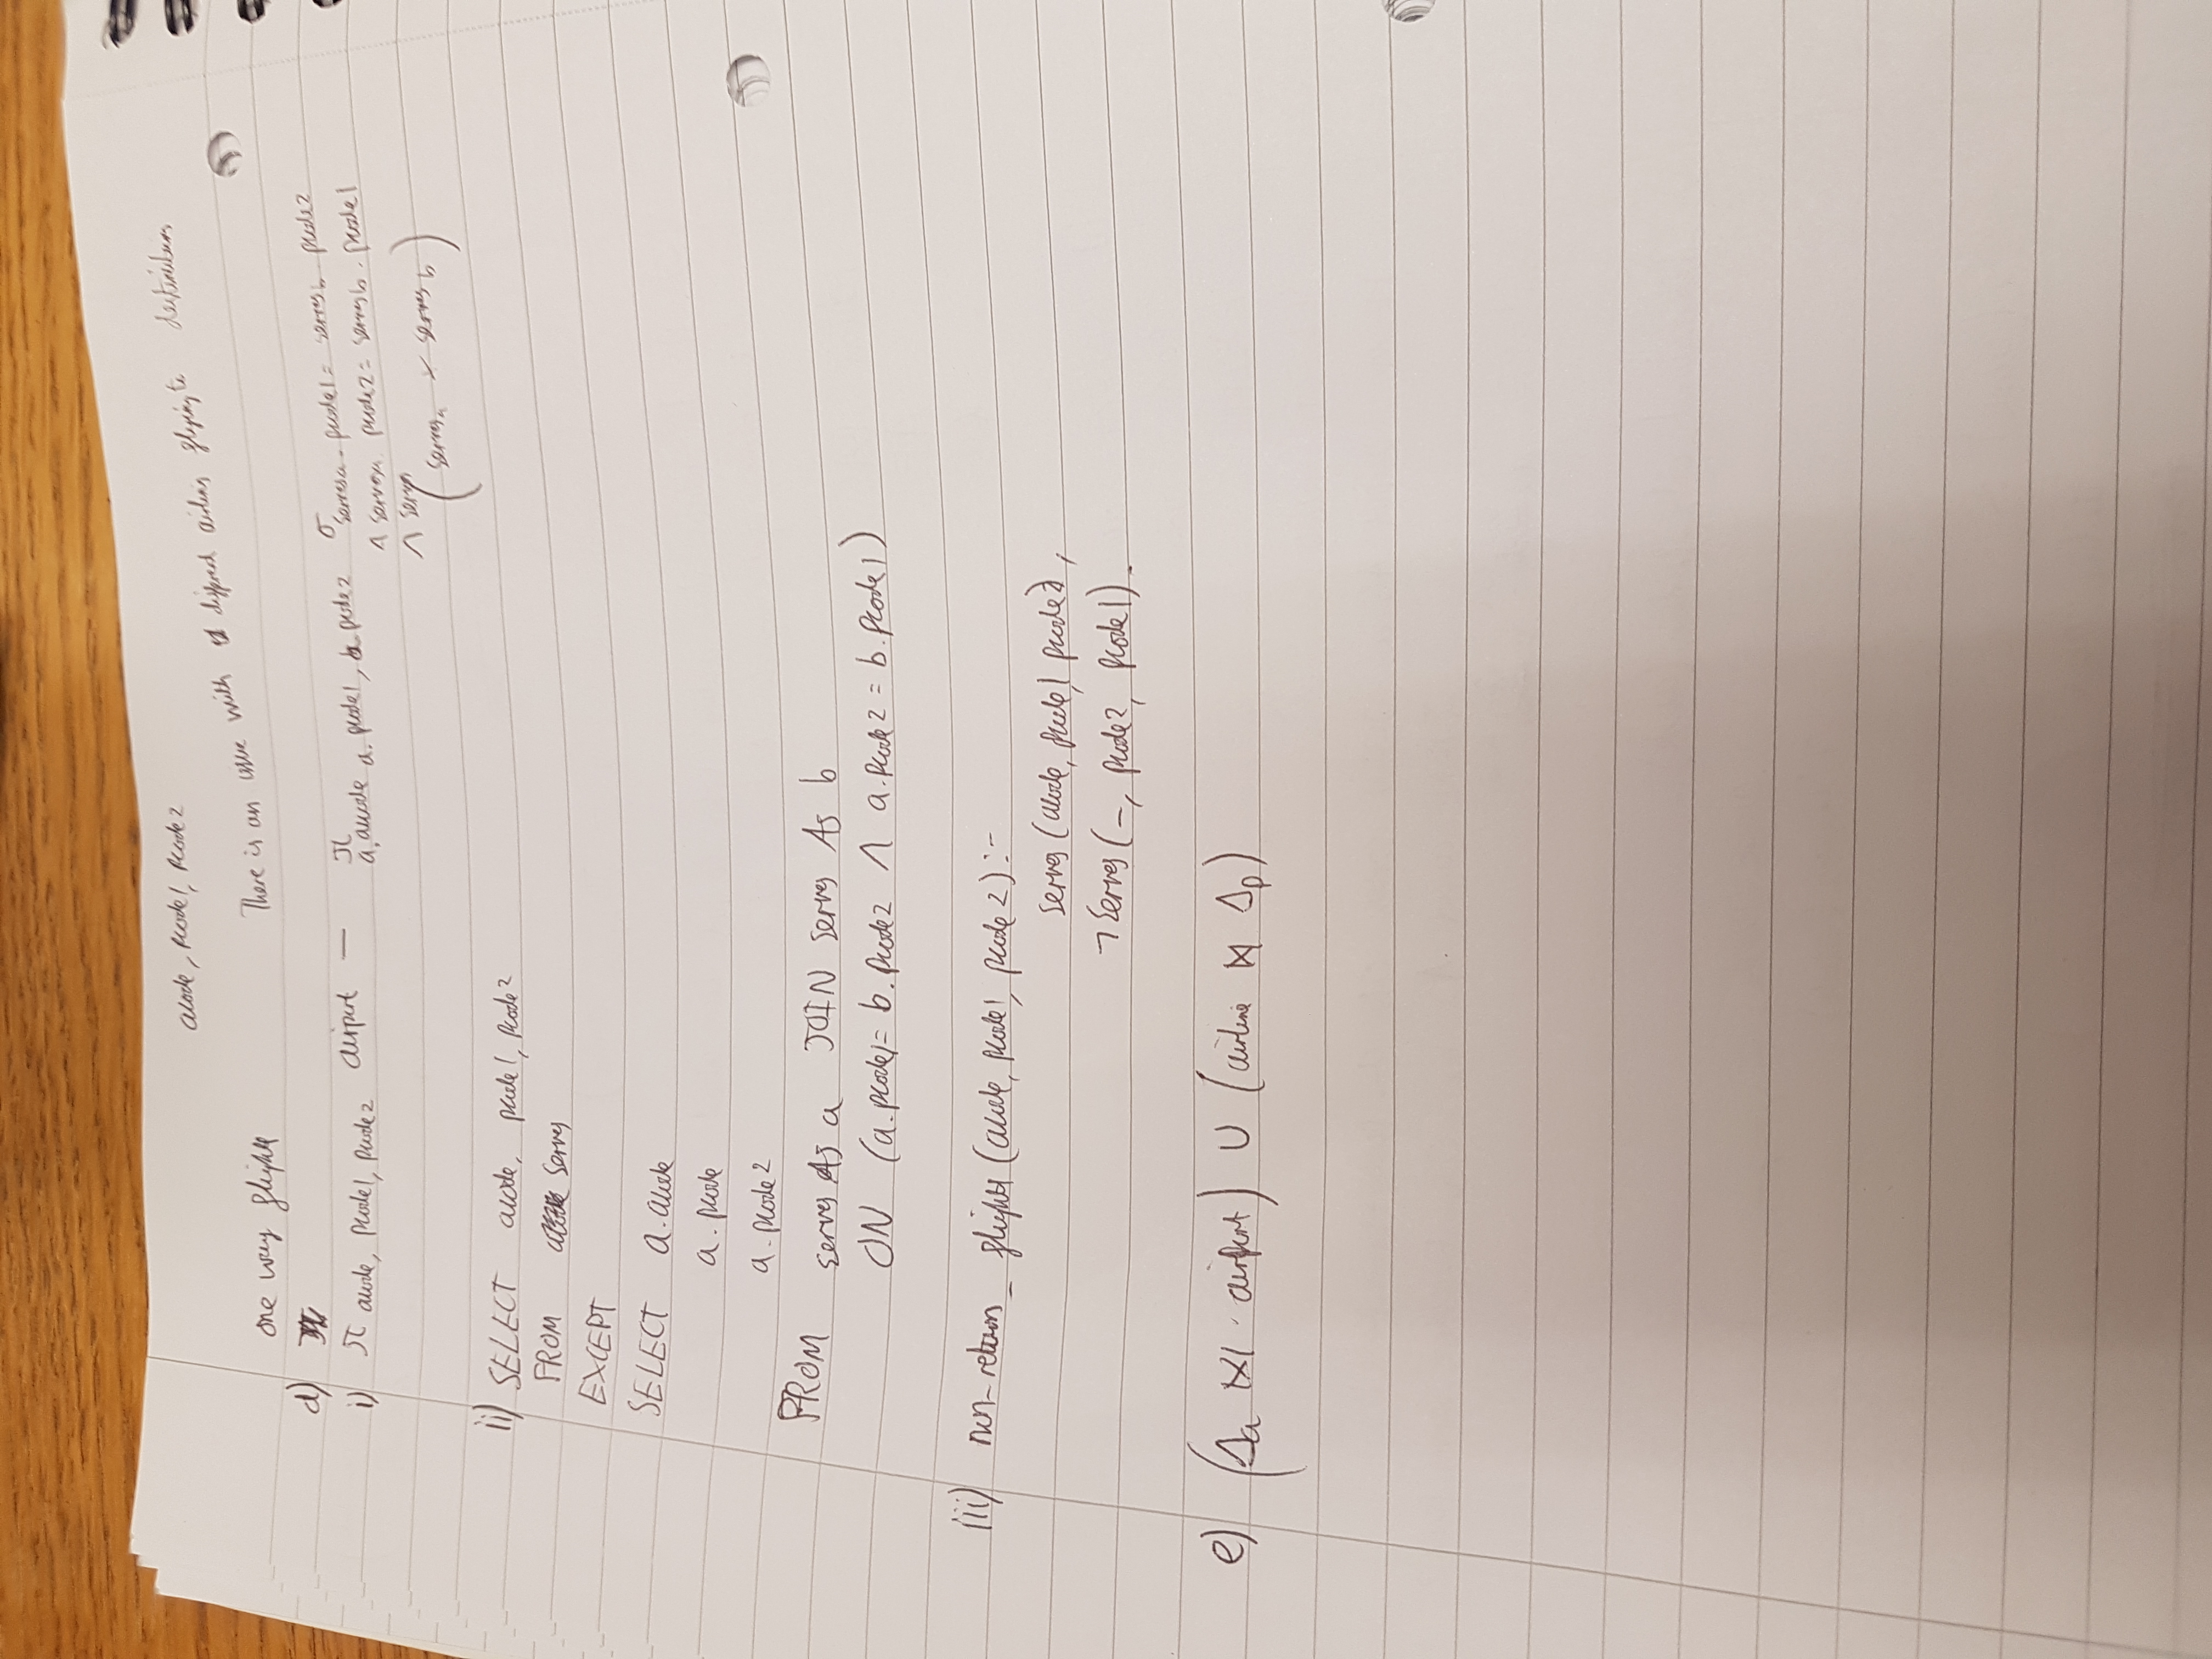 acode, pcode1, pcode2
one way flights
There is an issue with different airlines flying to destinations
d)
i) π acode, pcode1, pcode2 airport — π a.acode a.pcode1, a.pcode2 σ serves a. pcode1 = serves b. pcode2
∧ serves a. pcode2 = serves b. pcode1
∧ serves
(serves a × serves b)
ii) SELECT acode, pcode1, pcode2
FROM serves
EXCEPT
SELECT a.acode
a.pcode
a.pcode2
FROM serves As a JOIN serves As b
ON (a.pcode1= b.pcode2 ∧ a.pcode2 = b.pcode1)
iii) non_return_flights (acode, pcode1, pcode2) :-
serves (acode, pcode1 pcode2),
¬serves (_, pcode2, pcode1).
e) (Δa ⋈ airport) ∪ (airline ⋈ Δp)